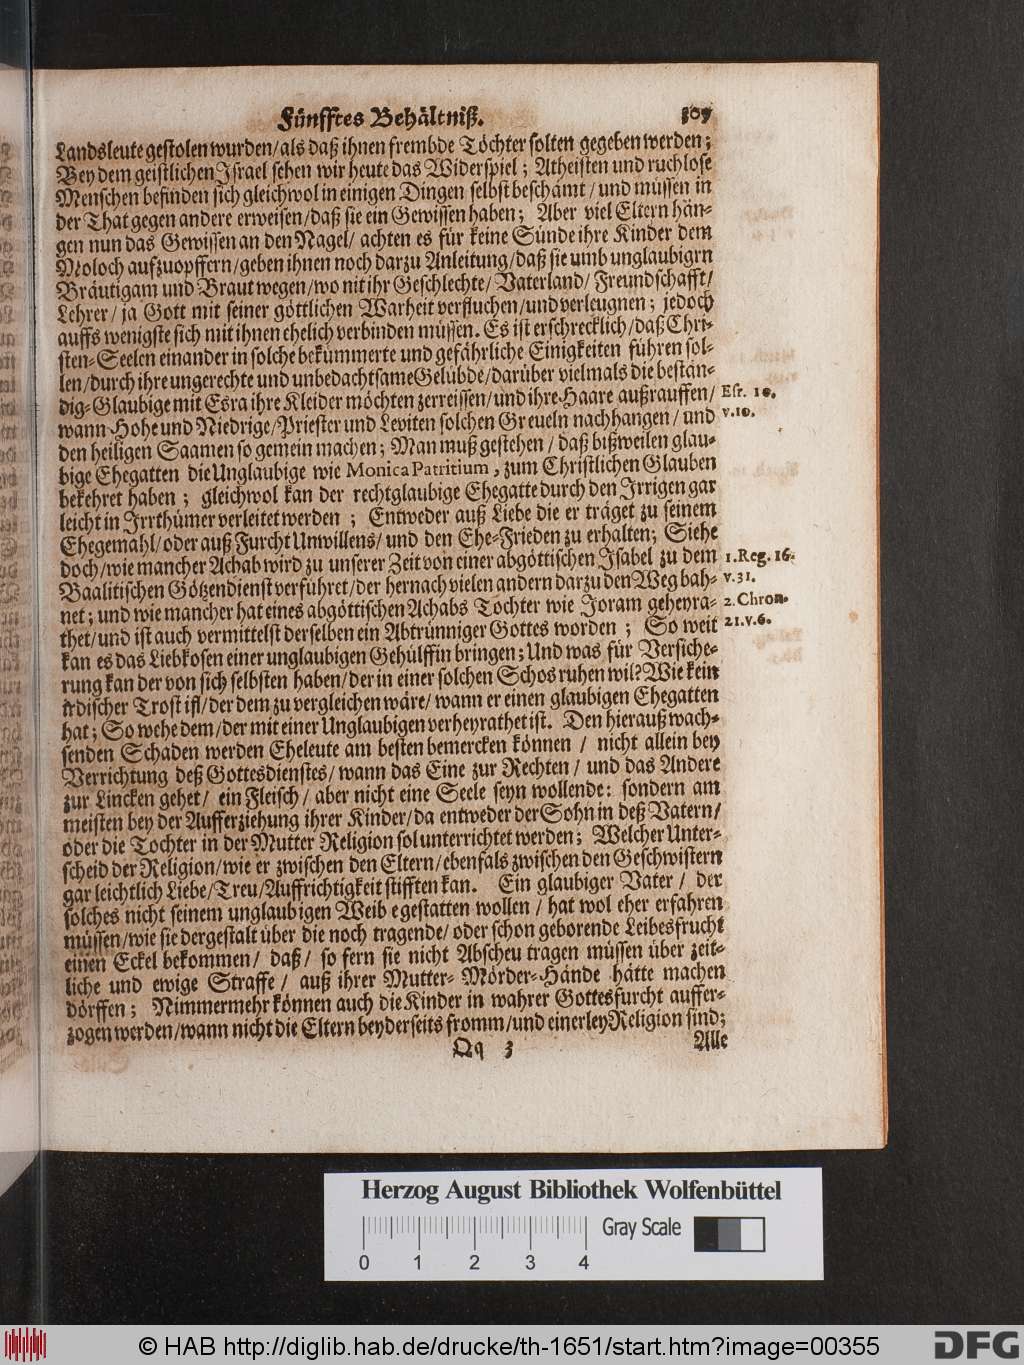 Fünfftes Behältniß. 309
Landsleute gestolen wurden/als daß ihnen frembde Töchter solten gegeben werden;
Bey dem geistlichen Israel sehen wir heute das Widerspiel; Atheisten und ruchlose
Menschen befinden sich gleichwol in einigen Dingen selbst beschämt/und müssen in
der That gegen andere erweisen/daß sie ein Gewissen haben; Aber viel Eltern hän-
gen nun das Gewissen an den Nagel/ achten es für keine Sünde ihre Kinder dem
Moloch aufzuopffern/geben ihnen noch darzu Anleitung/daß sie umb unglaubigrn
Bräutigam und Braut wegen/wo nit ihr Geschlechte/Vaterland/Freundschafft/
Lehrer/ja Gott mit seiner göttlichen Warheit verfluchen/und verleugnen; jedoch
auffs wenigste sich mit ihnen ehelich verbinden müssen. Es ist erschrecklich/daß Chri-
sten-Seelen einander in solche bekümmerte und gefährliche Einigkeiten führen sol-
len/durch ihre ungerechte und unbedachtsame Gelübde/darüber vielmals die bestän-
dig-Glaubige mit Esra ihre Kleider möchten zerreissen/und ihre Haare außrauffen/ Esr. 10.
wann Hohe und Niedrige/Priester und Leviten solchen Greueln nachhangen/und v.10.
den heiligen Saamen so gemein machen; Man muß gestehen/ daß bißweilen glau-
bige Ehegatten die Unglaubige wie Monica Patritium, zum Christlichen Glauben
bekehret haben; gleichwol kan der rechtglaubige Ehegatte durch den Irrigen gar
leicht in Irrthümer verleitet werden; Entweder auß Liebe die er träget zu seinem
Ehegemahl/oder auß Furcht Unwillens/und den Ehe-Frieden zu erhalten; Siehe
doch/wie mancher Achab wird zu unserer Zeit von einer abgöttischen Isabel zu dem 1.Reg. 16.
Baalitischen Götzendienst verführet/der hernach vielen andern darzu den Weg bah- v.31.
net; und wie mancher hat eines abgöttischen Achabs Tochter wie Joram geheyra- 2.Chron.
thet/und ist auch vermittelst derselben ein Abtrünniger Gottes worden; So weit 21.v.6.
kan es das Liebkosen einer unglaubigen Gehülffin bringen; Und was für Versiche-
rung kan der von sich selbsten haben/der in einer solchen Schos ruhen wil? Wie kein
irdischer Trost ist/der dem zu vergleichen wäre/ wann er einen glaubigen Ehegatten
hat; So wehe dem/der mit einer Unglaubigen verheyrathet ist. Den hierauß wach-
senden Schaden werden Eheleute am besten bemercken können / nicht allein bey
Verrichtung deß Gottesdienstes/wann das Eine zur Rechten/ und das Andere
zur Lincken gehet/ ein Fleisch/ aber nicht eine Seele seyn wollende: sondern am
meisten bey der Aufferziehung ihrer Kinder/da entweder der Sohn in deß Vatern/
oder die Tochter in der Mutter Religion sol unterrichtet werden; Welcher Unter-
scheid der Religion/wie er zwischen den Eltern/ebenfals zwischen den Geschwistern
gar leichtlich Liebe/Treu/Auffrichtigkeit stifften kan. Ein glaubiger Vater/ der
solches nicht seinem unglaubigen Weib egestatten wollen/ hat wol eher erfahren
müssen/wie sie dergestalt über die noch tragende/oder schon geborende Leibesfrucht
einen Eckel bekommen/ daß/ so fern sie nicht Abscheu tragen müssen über zeit-
liche und ewige Straffe/ auß ihrer Mutter- Mörder-Hände hätte machen
dörffen; Nimmermehr können auch die Kinder in wahrer Gottesfurcht auffer-
zogen werden/wann nicht die Eltern beyderseits fromm/und einerley Religion sind;
Qq 3 Alle
Herzog August Bibliothek Wolfenbüttel
Gray Scale
0 1 2 3 4
© HAB http://diglib.hab.de/drucke/th-1651/start.htm?image=00355
DFG